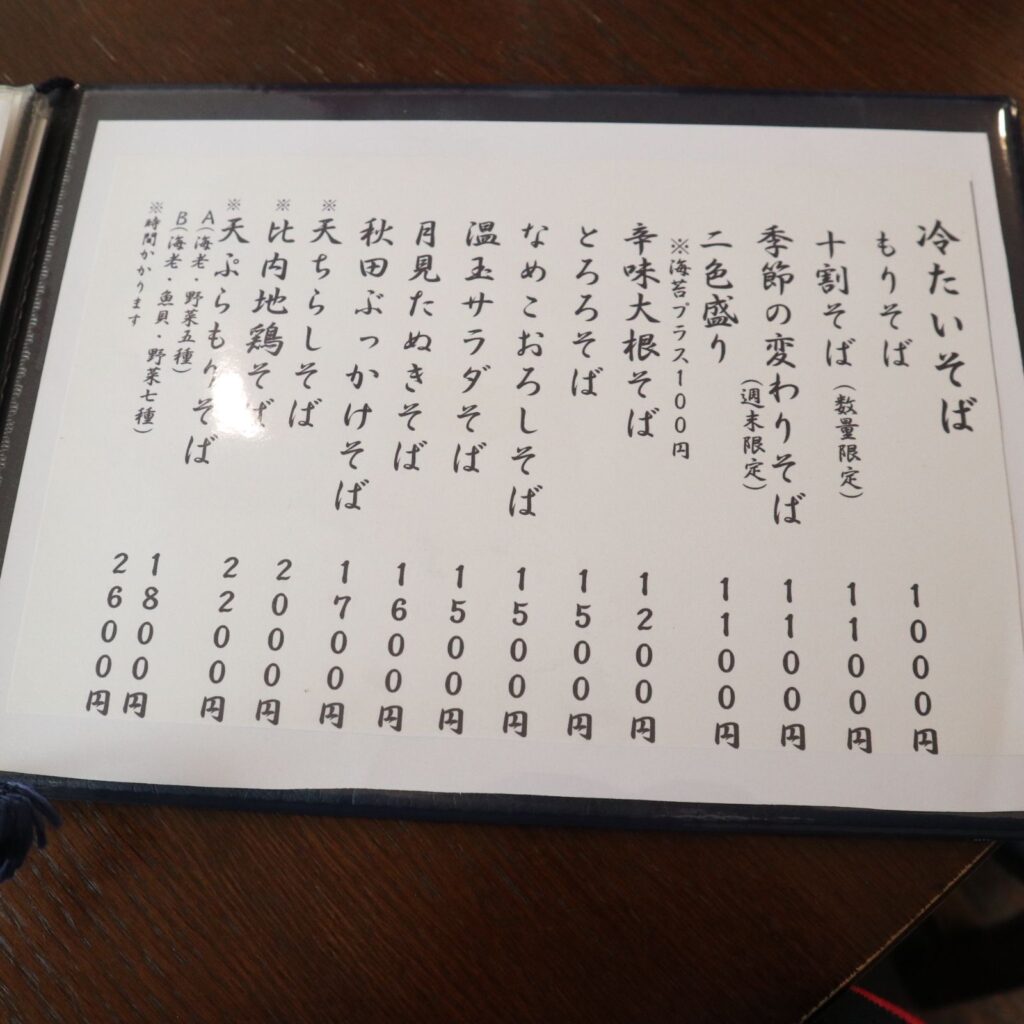 冷たいそば
もりそば 1000円
十割そば（数量限定） 1100円
季節の変わりそば 1100円
（週末限定）
二色盛り 1100円
※海苔プラス100円
辛味大根そば 1200円
とろろそば 1500円
なめこおろしそば 1500円
温玉サラダそば 1500円
月見たぬきそば 1600円
秋田ぶっかけそば 1700円
※天ちらしそば 2000円
※比内地鶏そば 2200円
※天ぷらもりそば
A（海老・野菜五種） 1800円
B（海老・魚貝・野菜七種） 2600円
※時間かかります